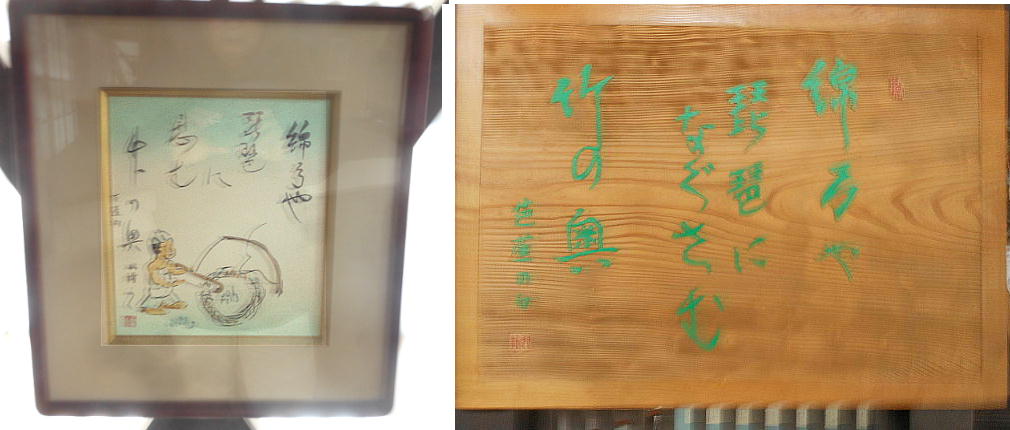 綿弓や
琵琶
に
慰む
竹の奥
綿弓や
琵琶に
なぐさむ
竹の奥